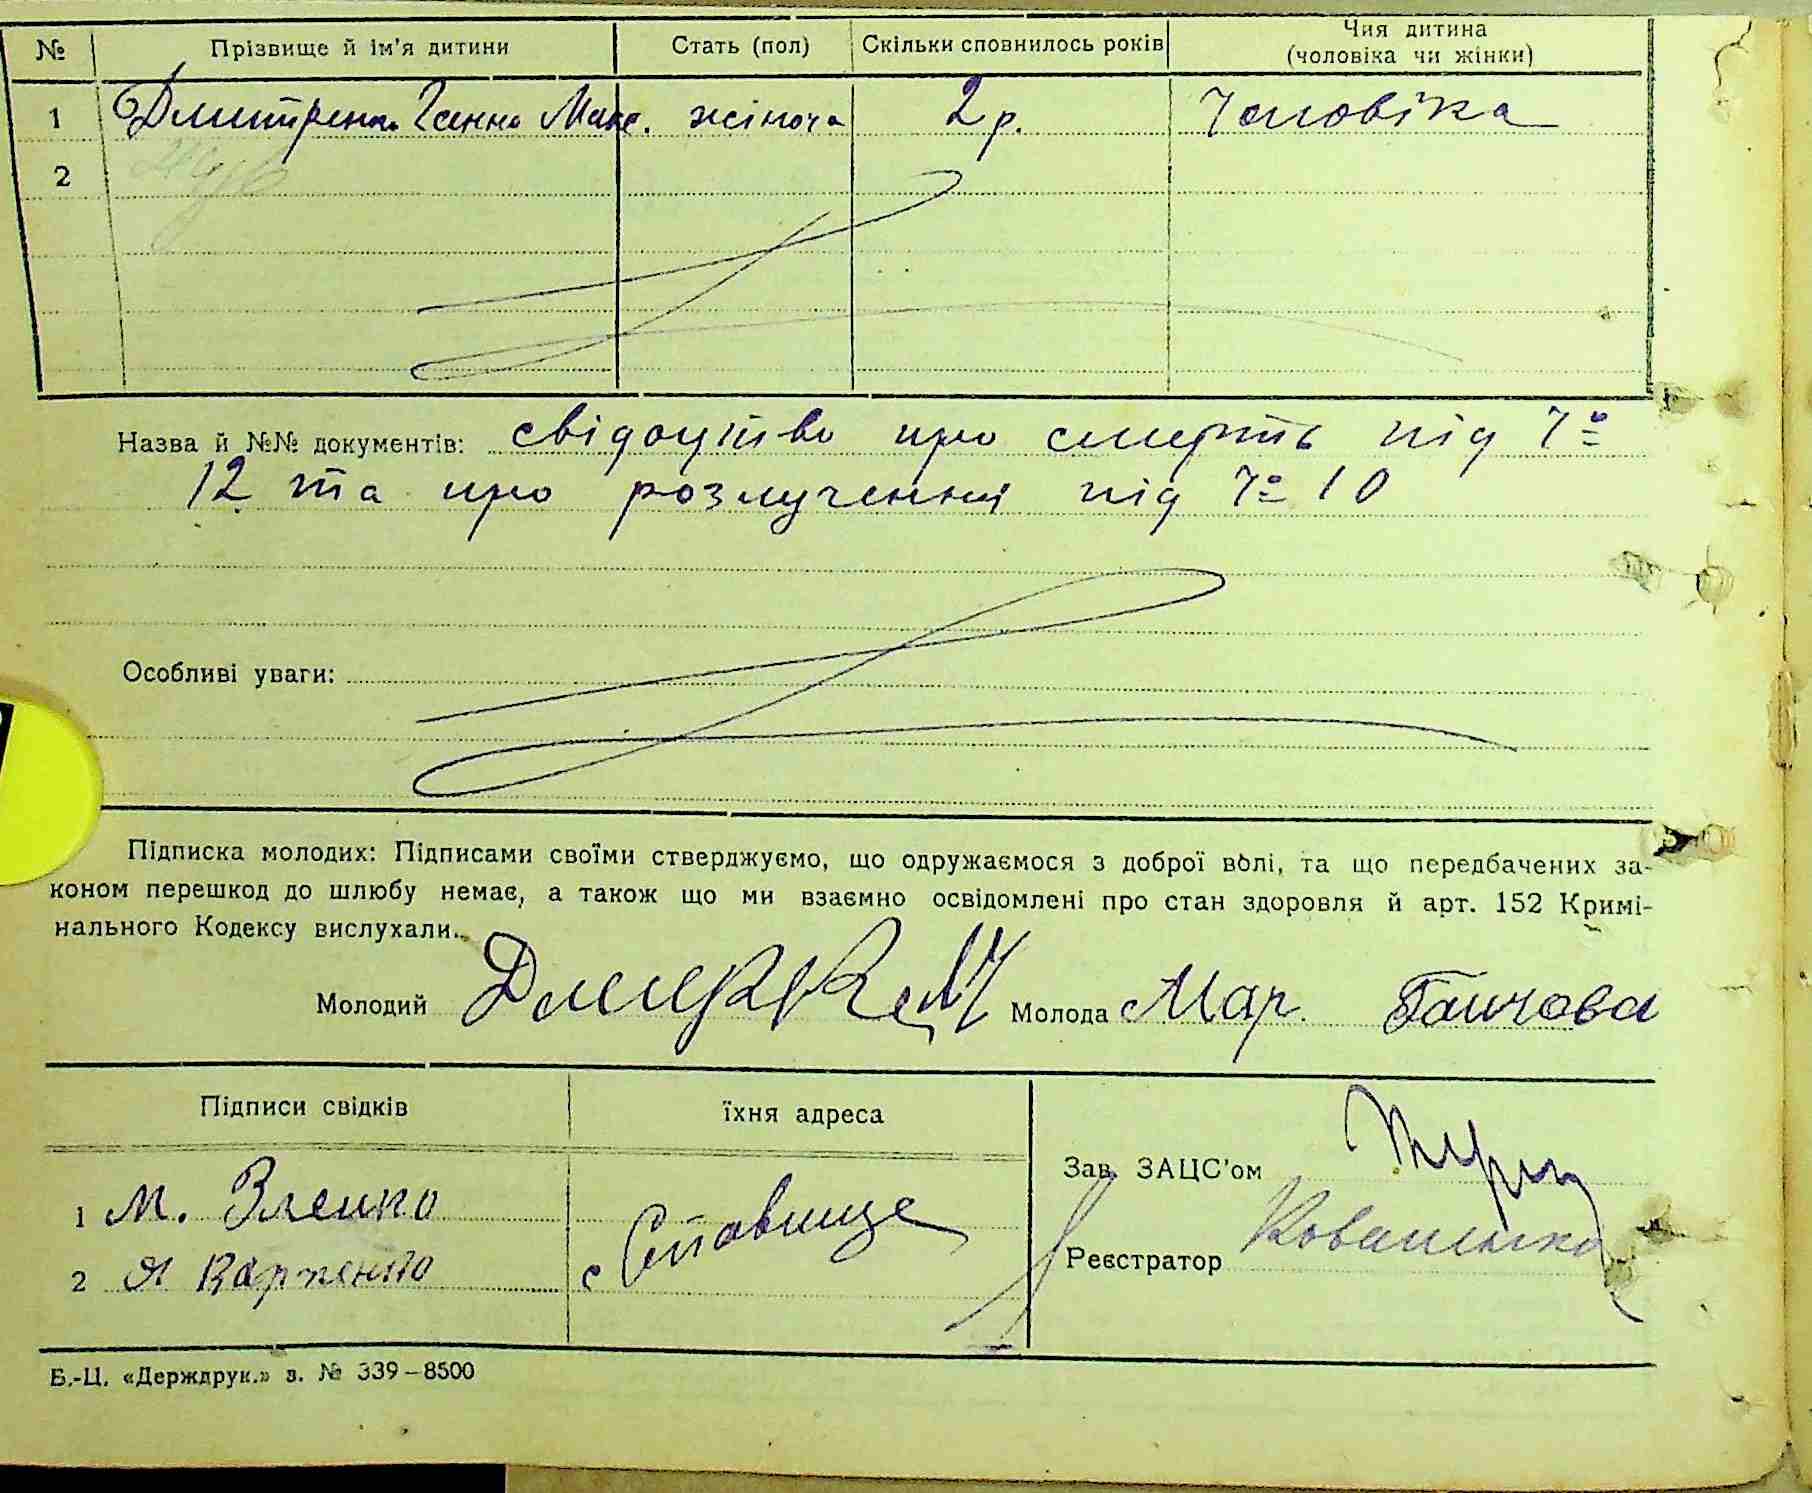 № Прізвище й ім'я дитини Стать (пол) Скільки сповнилось років Чия дитина
(чоловіка чи жінки)
1 Дмитренко Ганна Макс. жіноча 2 р. Чоловіка
2
Назва й №№ документів: свідоцтво про смерть під №
12 та про розлучення під № 10
Особливі уваги:
Підписка молодих: Підписами своїми стверджуємо, що одружаємося з доброї волі, та що передбачених за-
коном перешкод до шлюбу немає, а також що ми взаємно освідомлені про стан здоровля й арт. 152 Кримі-
нального Кодексу вислухали.
Молодий Молода Мар.
Підписи свідків їхня адреса
Зав. ЗАЦС'ом
1 М. Зленко с Ставище
Реєстратор Коваленко
2 Я Карпенко
Б.-Ц. «Держдрук.» з. № 339–8500